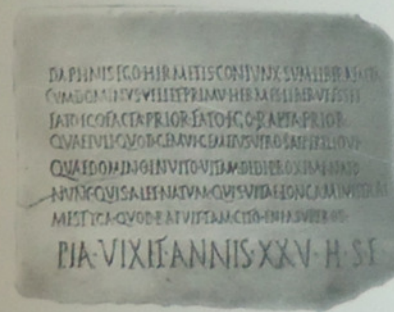 DAPHNIS EGO HERMETIS CONIUNX SUM LIBERA FACTA
CUM DOMINUS VELLET PRIMU HERMES LIBER UT ESSET
FATO EGO FACTA PRIOR FATO EGO RAPTA PRIOR
QUAE TULI QUOD GEMUI GEMITUS VIRO SAEPE RELIQUI
QUAE DOMINO INVITO VITAM DEDI PROXIME NATO
NUNC QUIS ALET NATUM QUIS VITAE LONGA MINISTRAT
ME STYGA QUOD RAPUIT TAM CITO ENI A SUPEROS
PIA·VIXIT·ANNIS·XXV·H·S·E